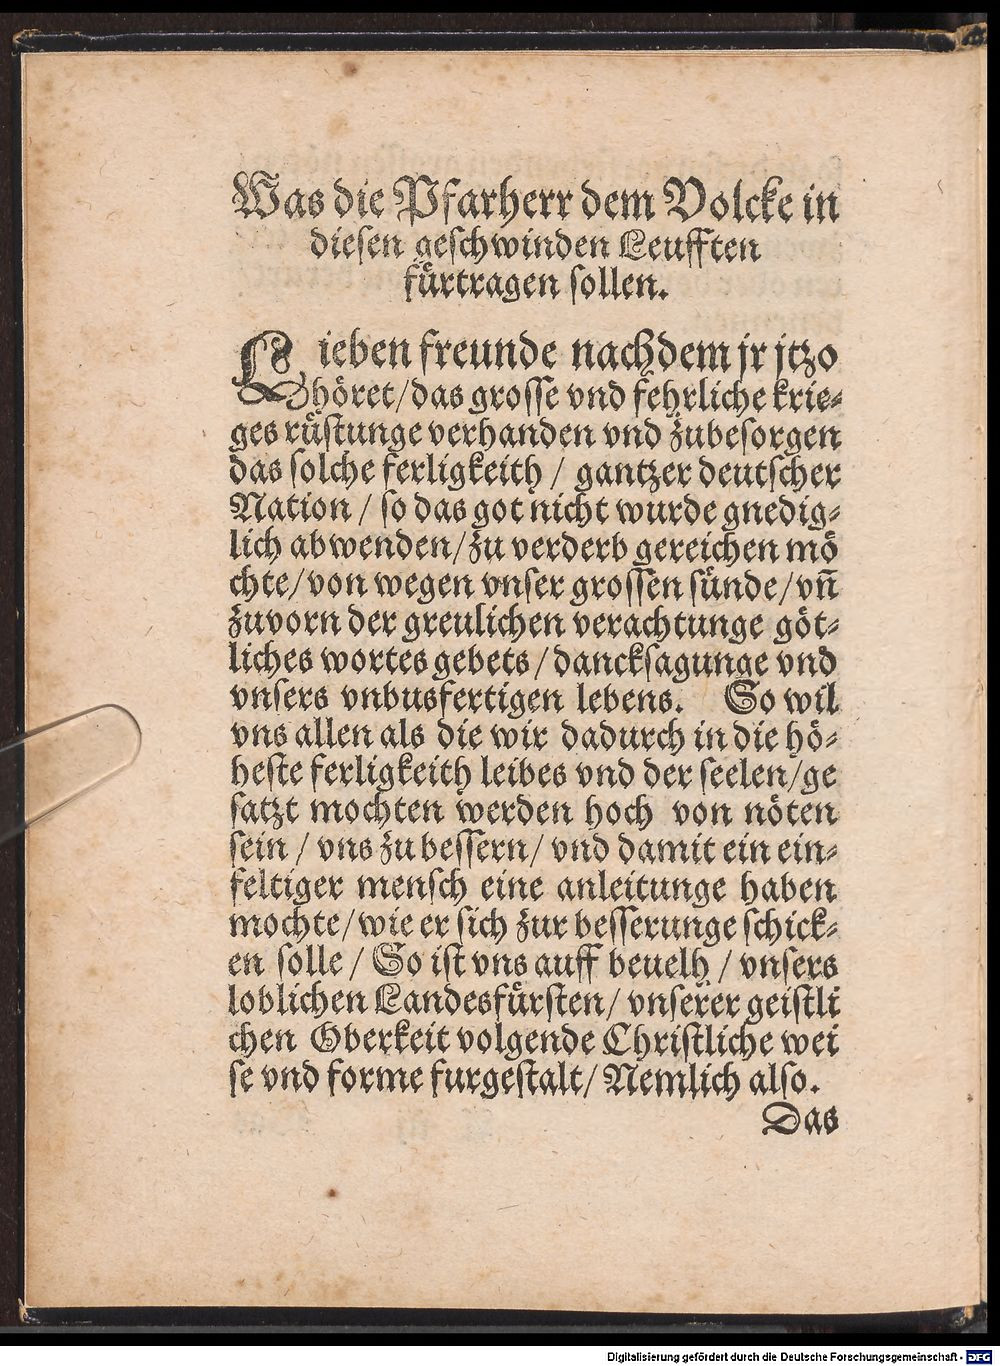 Was die Pfarherr dem Volcke in
diesen geschwinden Leufften
fürtragen sollen.
Lieben freunde nachdem jr jtzo
höret/das grosse vnd fehrliche krie⸗
ges rüstunge verhanden vnd zubesorgen
das solche ferligkeith / gantzer deutscher
Nation / so das got nicht wurde gnedig⸗
lich abwenden/zu verderb gereichen mö
chte/von wegen vnser grossen sünde/vñ
zuvorn der greulichen verachtunge göt⸗
liches wortes gebets/dancksagunge vnd
vnsers vnbusfertigen lebens. So wil
vns allen als die wir dadurch in die hö⸗
heste ferligkeith leibes vnd der seelen/ge
satzt mochten werden hoch von nöten
sein / vns zu bessern/ vnd damit ein ein⸗
feltiger mensch eine anleitunge haben
mochte/wie er sich zur besserunge schick⸗
en solle / So ist vns auff beuelh / vnsers
loblichen Landesfürsten/ vnserer geistli
chen Oberkeit volgende Christliche wei
se vnd forme furgestalt/ Nemlich also.
Das
Digitalisierung gefördert durch die Deutsche Forschungsgemeinschaft - DFG